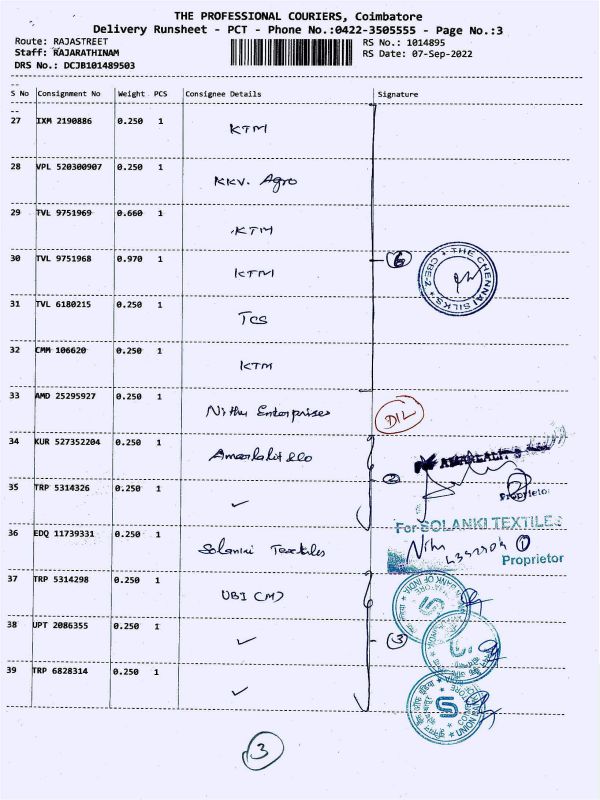 THE PROFESSIONAL COURIERS, Coimbatore
Delivery Runsheet - PCT - Phone No.:0422-3505555 - Page No.:3
Route: RAJASTREET RS No.: 1014895
Staff: RAJARATHINAM RS Date: 07-Sep-2022
DRS No.: DCJB101489503
S No Consignment No Weight PCS Consignee Details Signature
27 IXM 2190886 0.250 1 KTM
28 VPL 520300907 0.250 1 KKV. Agro
29 TVL 9751969 0.660 1 KTM
30 TVL 9751968 0.970 1 KTM 6 THE CHENNAI SILKS CBE-2
31 TVL 6180215 0.250 1 TCS
32 CMM 106620 0.250 1 KTM
33 AMD 25295927 0.250 1 Nithu Enterprises D/L
34 KUR 527352204 0.250 1 Amarlalit &co 2
Proprietor
35 TRP 5314326 0.250 1 ✓
For SOLANKI TEXTILES
36 EDQ 11739331 0.250 1 Solanki Textiles 1
Proprietor
37 TRP 5314298 0.250 1 UBI (M)
38 UPT 2086355 0.250 1 ✓ 3
39 TRP 6828314 0.250 1 ✓
3